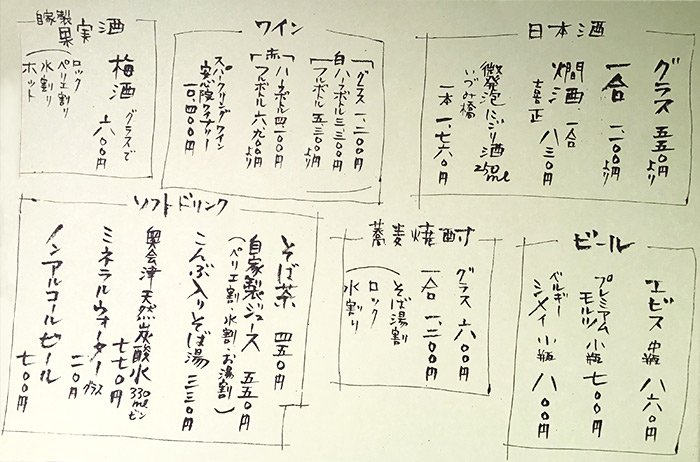 日本酒
グラス 五五〇円より
一合 一、一〇〇円より
燗酒 一合
喜正 八三〇円
微発泡にごり酒 250ml
いづみ橋
一本 一、七六〇円
ワイン
グラス 一、二〇〇円
白 ハーフボトル 三、三〇〇円
フルボトル 五、五〇〇円より
赤 ハーフボトル 四、一〇〇円
フルボトル 六、九〇〇円より
スパークリングワイン
安心院ワイナリー
一〇、四〇〇円
自家製
果実酒
梅酒 グラスで 六〇〇円
ロック
ペリエ割り
水割り
ホット
ビール
ヱビス 中瓶 八六〇円
プレミアム
モルツ 小瓶 七〇〇円
ベルギー
シメイ 小瓶 八〇〇円
蕎麦焼酎
グラス 六〇〇円
一合 一、二〇〇円
そば湯割
ロック
水割り
ソフトドリンク
そば茶 四五〇円
自家製ジュース 五五〇円
(ペリエ割・水割・お湯割)
こんぶ入りそば湯 三三〇円
奥会津 天然炭酸水 330mlビン
七七〇円
ミネラルウォーター グラス 二〇円
ノンアルコールビール 七〇〇円